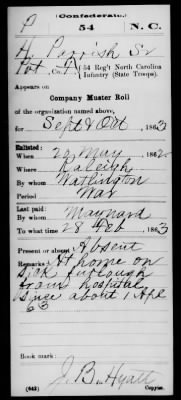 P
(Confederate.)
54 N. C.
H. Parrish Sr
Pvt, Co.
54 Reg't North Carolina
Infantry (State Troops).
Appears on
Company Muster Roll
of the organization named above,
for Sept & Oct, 1863
Enlisted:
When 29 May, 1862
Where Raleigh
By whom Watlington
Period War
Last paid:
By whom Maynard
To what time 28 Feb, 1863
Present or absent Absent
Remarks: At home on
Sick furlough
from hospital
since about 1 Apl
63
Book mark:
J. B. Hyatt
(642) Copyist.